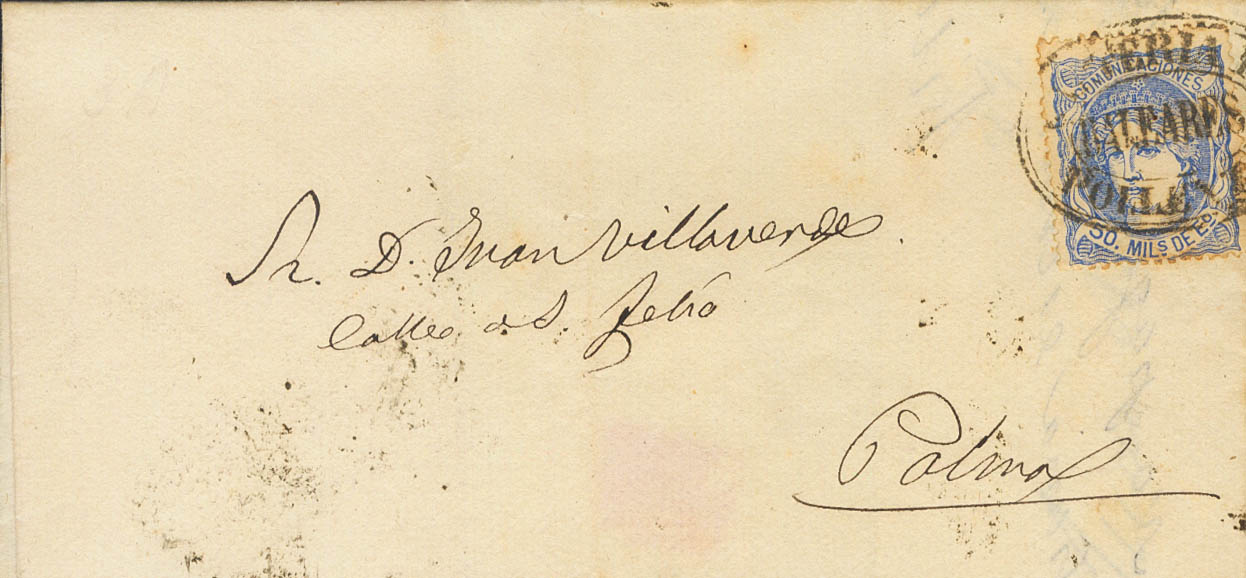 COMUNICACIONES
BALEARES
50. MILS DE Eº
Sr. D. Juan Villaverde
Calle de S. Felió
Palma